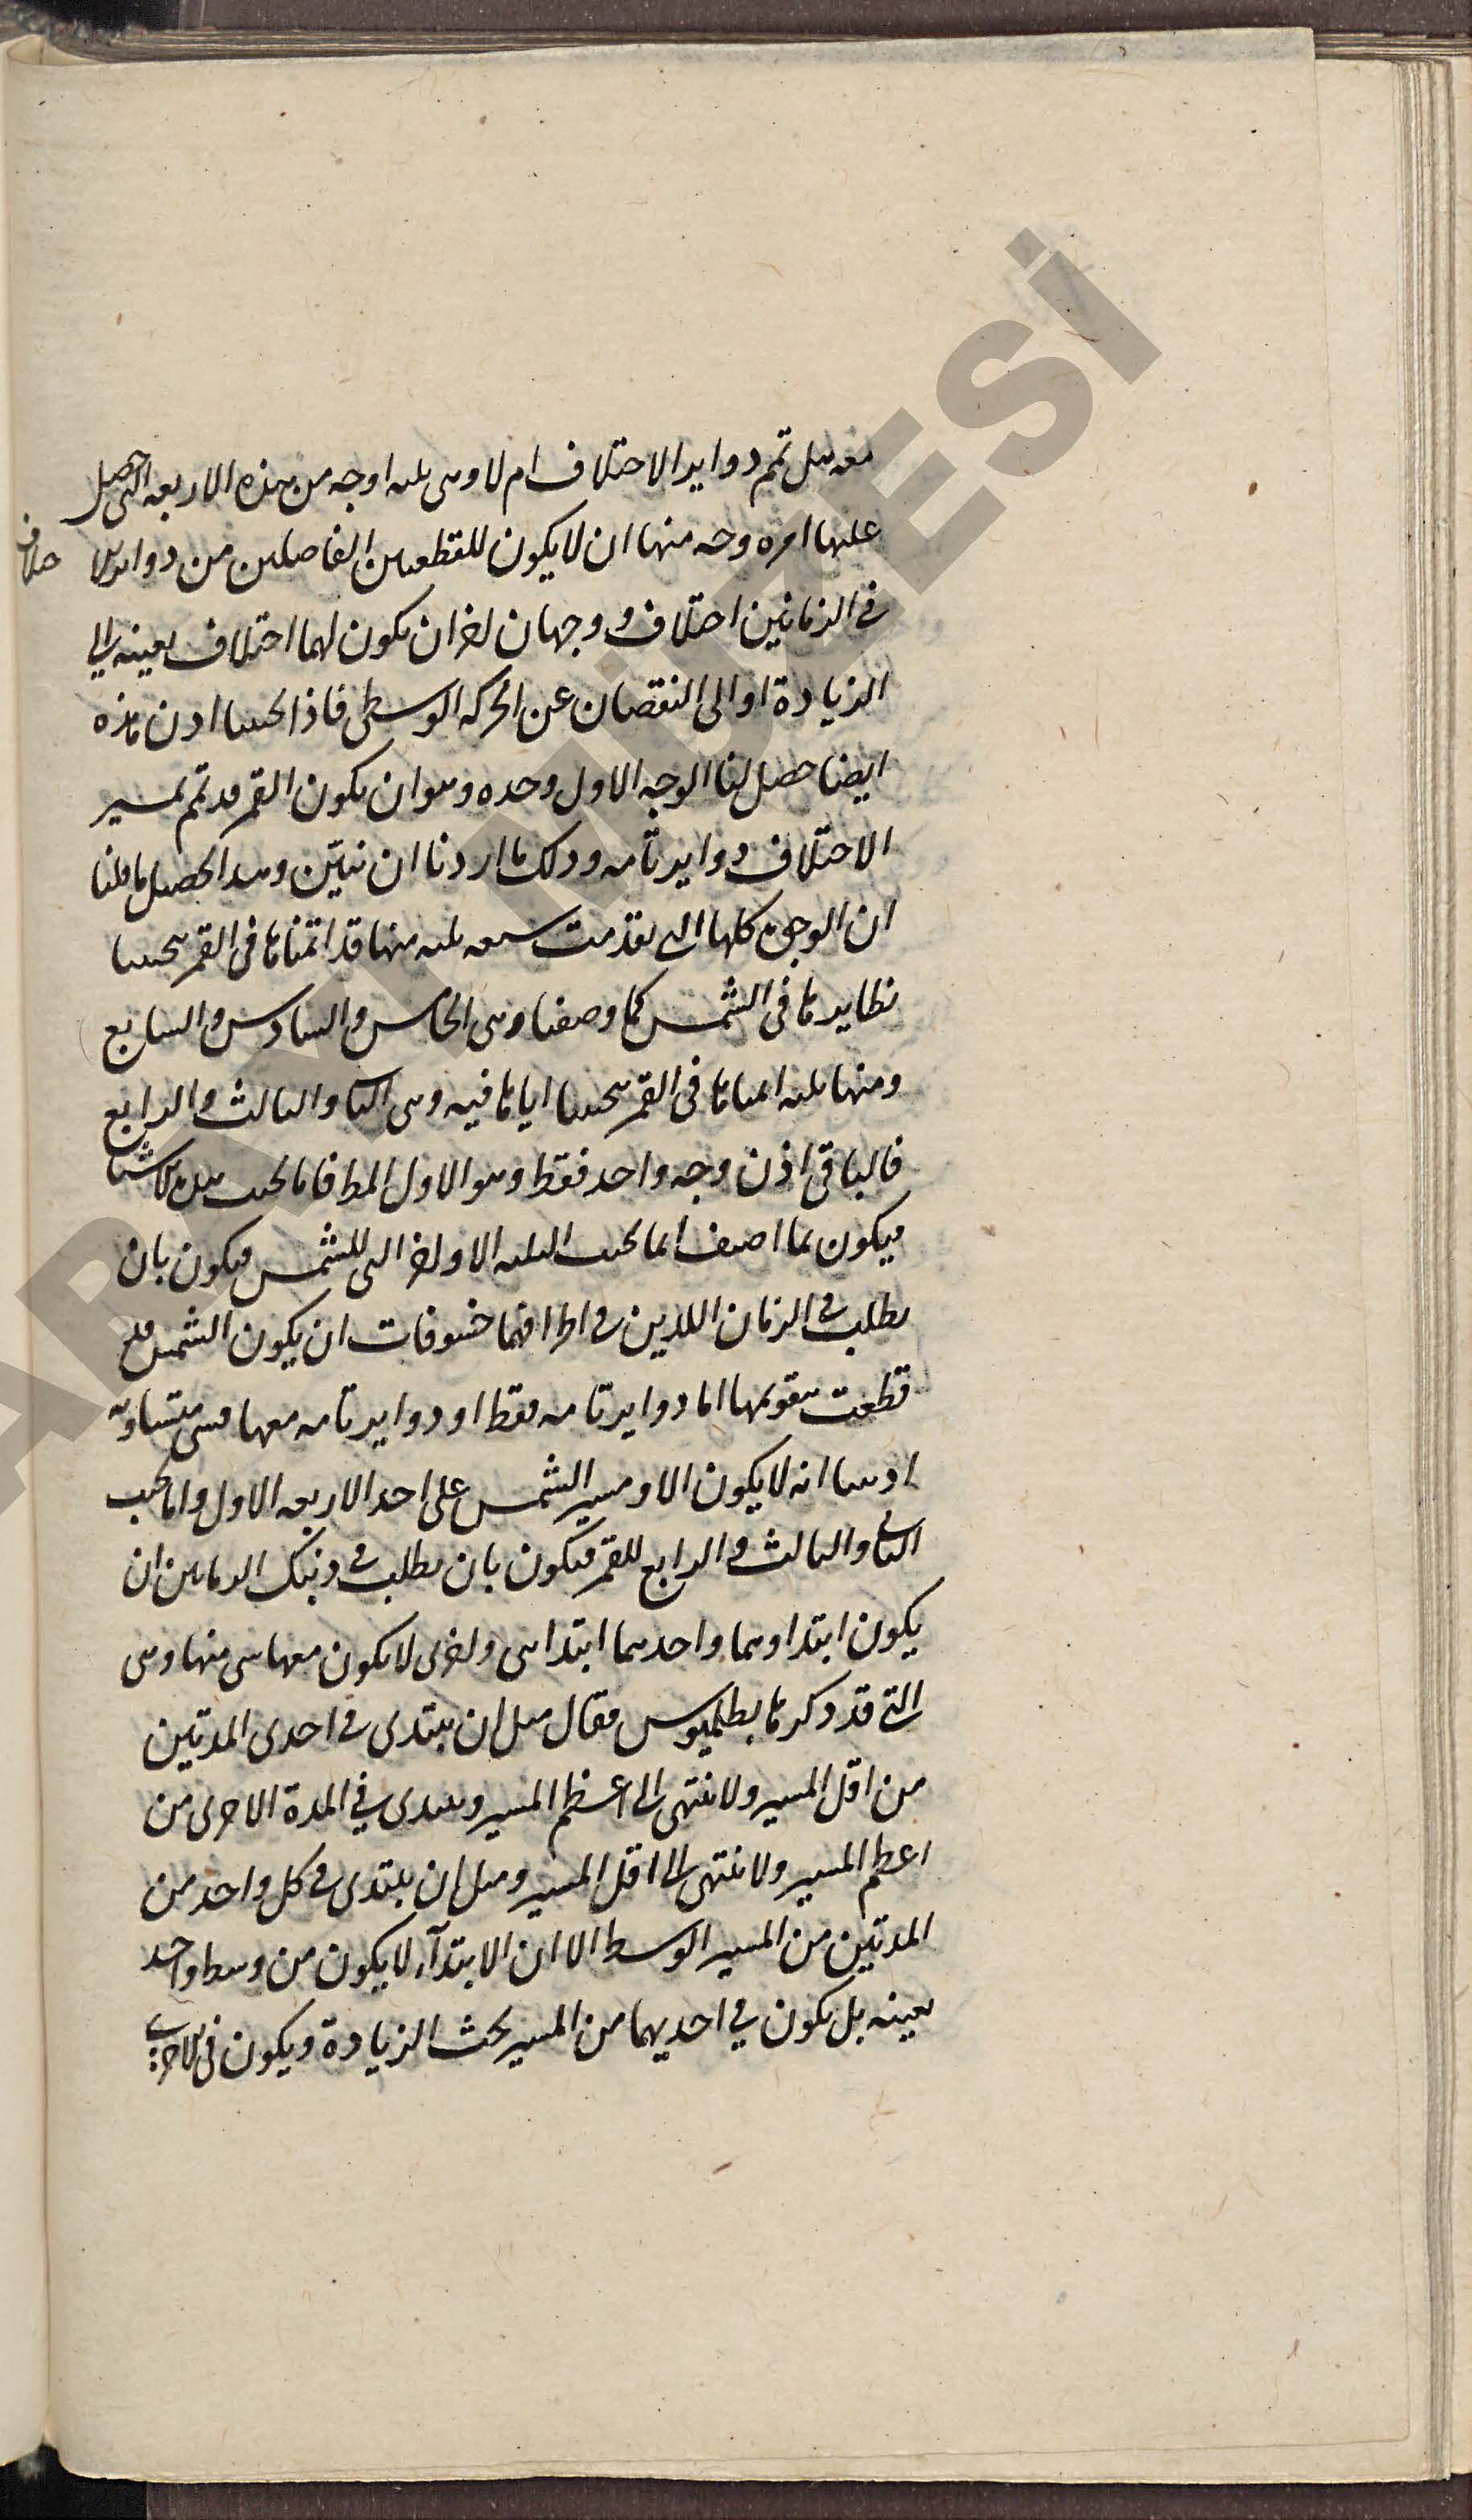 معه هل تمم دواير الاختلاف ام لا وهي ثلثه اوجه من هذه الاربعه التي حصل
عليها امره وجه منها ان لا يكون للقطعتين الفاضلتين من دواير الاختلاف
في الزمانين اختلاف ووجهان اخران يكون لهما اختلاف بعينه الي
الزيادة او الى النقصان عن الحركه الوسطى فاذا تجنبنا اذن هذه
ايضا حصل لنا الوجه الاول وحده وهو ان يكون القمر قد تمم بمسير
الاختلاف دواير تامه وذلك ما اردنا ان نبيّن وهذا تحصيل ما قلنا
ان الوجوه كلها التي تقدمت سبعه ثلثه منها قد اتمناها في القمر بتجنبنا
نظايرها في الشمس كما وصفنا وهي الخامس والسادس والسابع
ومنها ثلثه اتمناها في القمر بتجنبنا اياها فيه وهي الثاني والثالث والرابع
فالباقي اذن وجه واحد فقط وهو الاول المط فاما تجنب هذه الاشيا
فيكون بما اصف اما تجنب الثلثه الاول اخر التي للشمس فيكون بان
يطلب في الزمان اللذين في اطرافهما خسوفات ان يكون الشمس قد
قطعت بتقويمها اما دواير تامه فقط او دواير تامه معها قسي متساويه
اذ بينا انه لا يكون الا ومسير الشمس على احد الاربعه الاول واما تجنب
الثاني والثالث والرابع للقمر فيكون بان يطلب في ذينك الزمانين ان
يكون ابتداوهما واحدهما ابتداى ولخرى لا يكون معها شي منها وهي
التي قد ذكرها بطلميوس فقال مثل ان يبتدى في احدى المدتين
من اقل المسير ولا ينتهى الى اعظم المسير ويبتدى في المدة الاخرى من
اعظم المسير ولا ينتهى الى اقل المسير ومثل ان يبتدى في كل واحد من
المدتين من المسير الوسط الا ان الابتدآء لا يكون من وسط واحد
بعينه بل يكون في احديهما من المسير بحث الزيادة ويكون في الاخرى